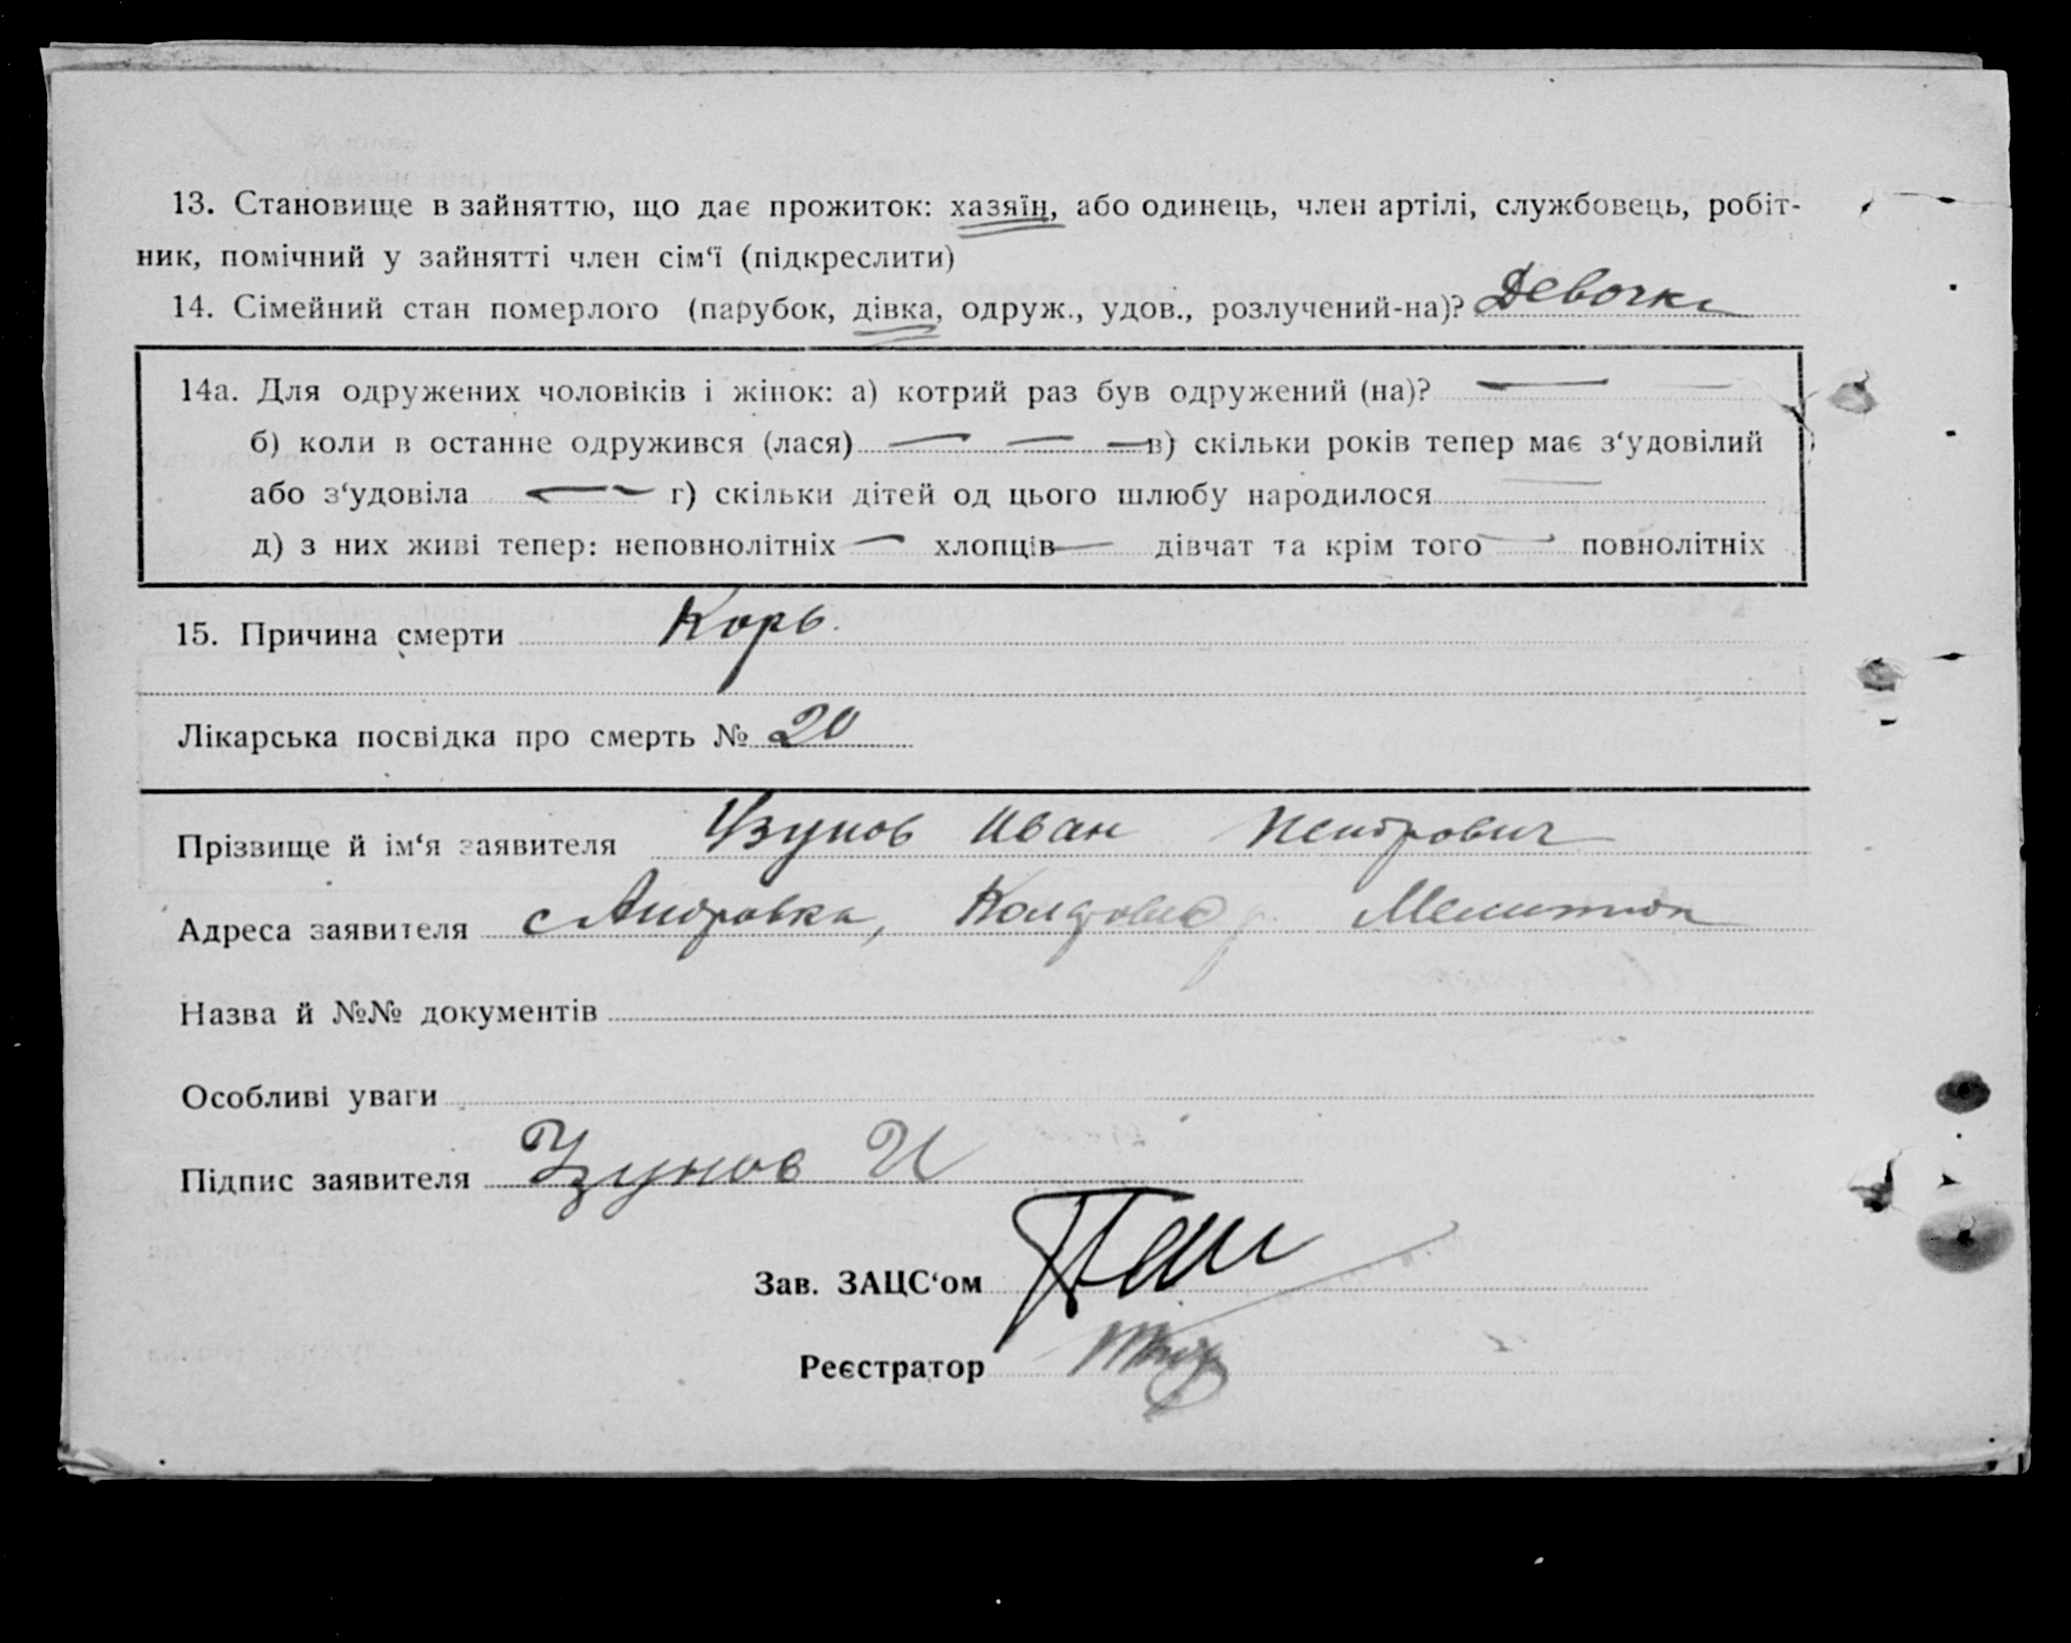 13. Становище в зайняттю, що дає прожиток: хазяїн, або одинець, член артілі, службовець, робіт-
ник, помічний у зайнятті член сім‘ї (підкреслити)
14. Сімейний стан померлого (парубок, дівка, одруж., удов., розлучений-на)? Девочка
14а. Для одружених чоловіків і жінок: а) котрий раз був одружений (на)? —
б) коли в останнє одружився (лася) — — — в) скільки років тепер має з‘удовілий
або з‘удовіла — г) скільки дітей од цього шлюбу народилося —
д) з них живі тепер: неповнолітніх — хлопців — дівчат та крім того — повнолітніх
15. Причина смерти Корь.
Лікарська посвідка про смерть № 20
Прізвище й ім‘я заявителя Узунов Иван Петрович
Адреса заявителя с
Назва й №№ документів
Особливі уваги
Підпис заявителя Узунов И
Зав. ЗАЦС‘ом
Реєстратор